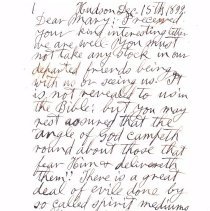 1 Hudson Dec 15th 1899.
Dear Mary; I received
your kind interesting letter
we are well. You must
not take any stock in our
departed friends being
with us or seeing us! It
is not revealed to us in
the Bible; but you may
rest assured that the
angle of God campeth
round about those that
fear Him & delivereth
them! There is a great
deal of evil done by
so called spirit mediums